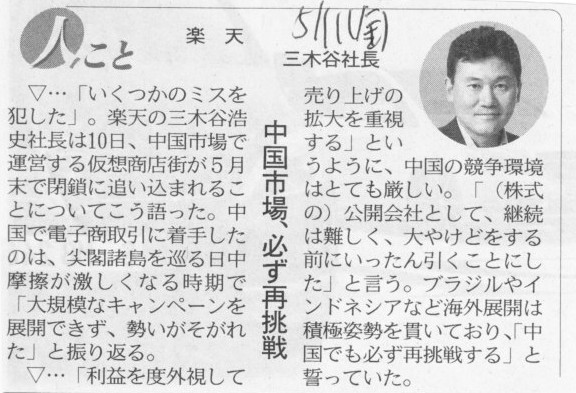 人こと
楽天
5/11(金)
三木谷社長
中国市場、必ず再挑戦
▽…「いくつかのミスを
犯した」。楽天の三木谷浩
史社長は10日、中国市場で
運営する仮想商店街が５月
末で閉鎖に追い込まれるこ
とについてこう語った。中
国で電子商取引に着手した
のは、尖閣諸島を巡る日中
摩擦が激しくなる時期で
「大規模なキャンペーンを
展開できず、勢いがそがれ
た」と振り返る。
▽…「利益を度外視して
売り上げの
拡大を重視
する」とい
うように、中国の競争環境
はとても厳しい。「（株式
の）公開会社として、継続
は難しく、大やけどをする
前にいったん引くことにし
た」と言う。ブラジルやイ
ンドネシアなど海外展開は
積極姿勢を貫いており、「中
国でも必ず再挑戦する」と
誓っていた。